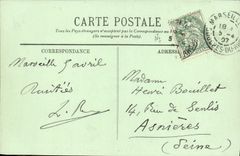 CARTE POSTALE
Tous les pays étrangers n'acceptent pas la Correspondance au
(Se renseigner à la Poste)
CORRESPONDANCE
ADRESSE
MARSEILLE
Marseille 5 avril
Amitiés
Madame
Henri Bouillet
14, Rue de Senlis
Asnières
(Seine)